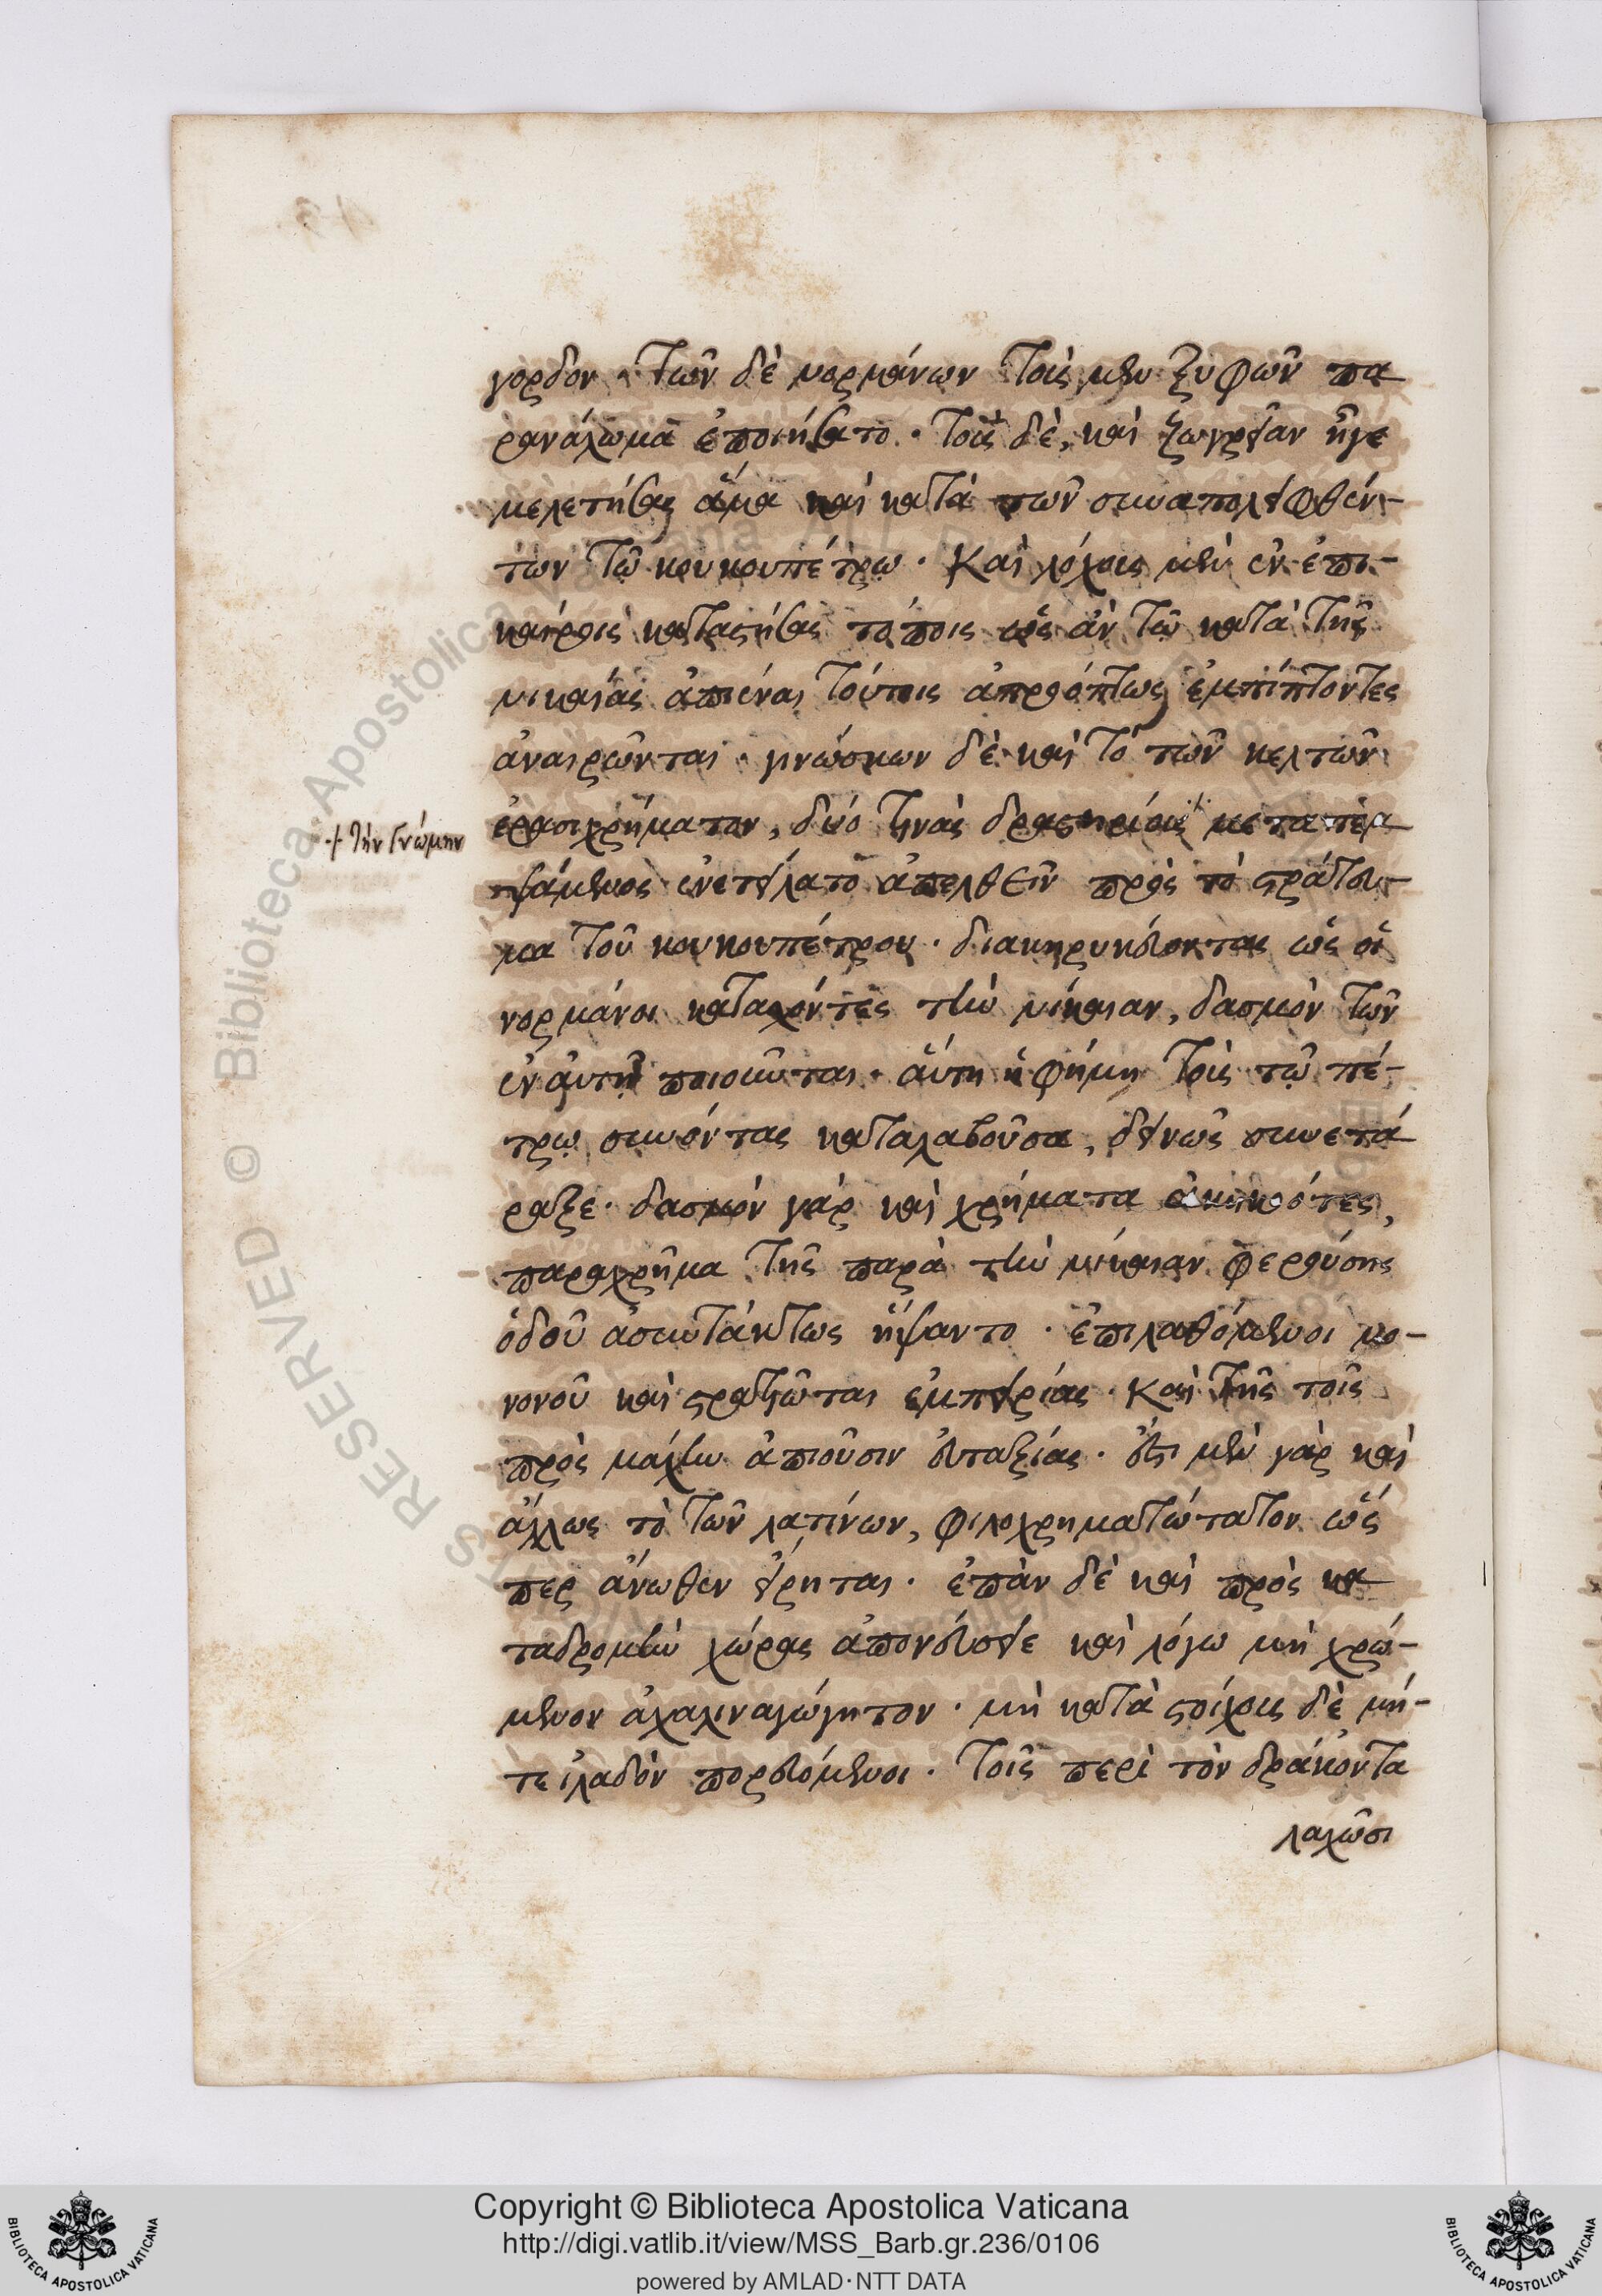 γορδον· τῶν δὲ νορμάνων τοὺς μὲν ξιφῶν πα
ρανάλωμα ἐποιήσατο· τοὺς δὲ, καὶ ζωγρείαν ἦγε
μελετήσας ἅμα καὶ κατὰ τῶν συναπολειφθέν-
των τῷ κουκουπέτρῳ· Καὶ λόχους μὲν ἐν ἐπι-
καίροις καταστήσας τόποις ὡς ἂν τῷ κατὰ τῆς
νικαίας ἀπιέναι τούτοις ἀπροόπτως ἐμπίπτοντες
ἀναιρῶνται· γινώσκων δὲ καὶ τὸ τῶν κελτῶν
ἐρασιχρήματον, δύο τινὰς δραστηρίους μεταπεμ
+ τὴν γνώμην
ψάμενος ἐνετείλατο ἀπελθεῖν πρὸς τὸ στράτευ-
μα τοῦ κουκουπέτρου· διακηρυκεύοντας ὡς οἱ
νορμάνοι κατασχόντες τὴν νίκαιαν, δασμὸν τῶν
ἐν αὐτῇ ποιοῦνται· αὕτη ἡ φήμη τοὺς τῷ πέ-
τρῳ συνόντας καταλαβοῦσα, δεινῶς συνετά
ραξε· δασμὸν γὰρ καὶ χρήματα ἀκηκοότες,
παραχρῆμα τῆς παρὰ τὴν νίκαιαν φερούσης
ὁδοῦ ἀσυντάκτως ἥψαντο· ἐπιλαθόμενοι μο-
νονοῦ καὶ στρατιῶται ἐμπειρίας· Καὶ τῆς τοῖς
πρὸς μάχην ἀπιοῦσιν εὐταξίας· ἔστι μὲν γὰρ καὶ
ἄλλως τὸ τῶν λατίνων, φιλοχρηματώτατον ὥς
περ ἄνωθεν εἴρηται· ἐπὰν δὲ καὶ πρὸς κα
ταδρομὴν χώρας ἀπονεύσειε καὶ λόγω μὴ χρώ-
μενον ἀχαλιναγώγητον· μὴ κατὰ στοίχους δὲ μή-
τε ἰλαδὸν πορευόμενοι· τοῖς περὶ τὸν δράκοντα
λαχῶσι
Copyright © Biblioteca Apostolica Vaticana
http://digi.vatlib.it/view/MSS_Barb.gr.236/0106
powered by AMLAD·NTT DATA
BIBLIOTECA APOSTOLICA VATICANA
BIBLIOTECA APOSTOLICA VATICANA